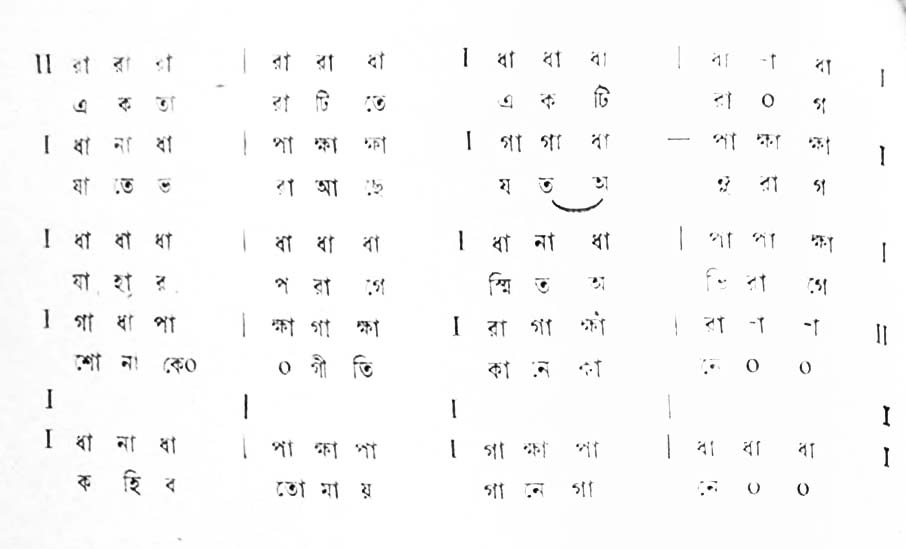 II রা রা রা | রা রা ধা I ধা ধা ধা | ধা -া ধা I
এ ক তা রা টি তে এ ক টি রা ০ গ
I ধা না ধা | পা ক্ষা ক্ষা I গা গা ধা — পা ক্ষা ক্ষা I
যা তে ভ রা আ ছে য ত অ নু রা গ
I ধা ধা ধা | ধা ধা ধা I ধা না ধা | পা পা ক্ষা I
যা হা র প রা গে স্মি ত অ ভি রা গে
I গা ধা পা | ক্ষা গা ক্ষা I রা গা ক্ষা | রা -া -া II
শো না কে০ ০ গী তি কা নে কা নে ০ ০
I | I | I
I ধা না ধা | পা ক্ষা পা I গা ক্ষা পা | ধা ধা ধা I
ক হি ব তো মা য় গা নে গা নে ০ ০